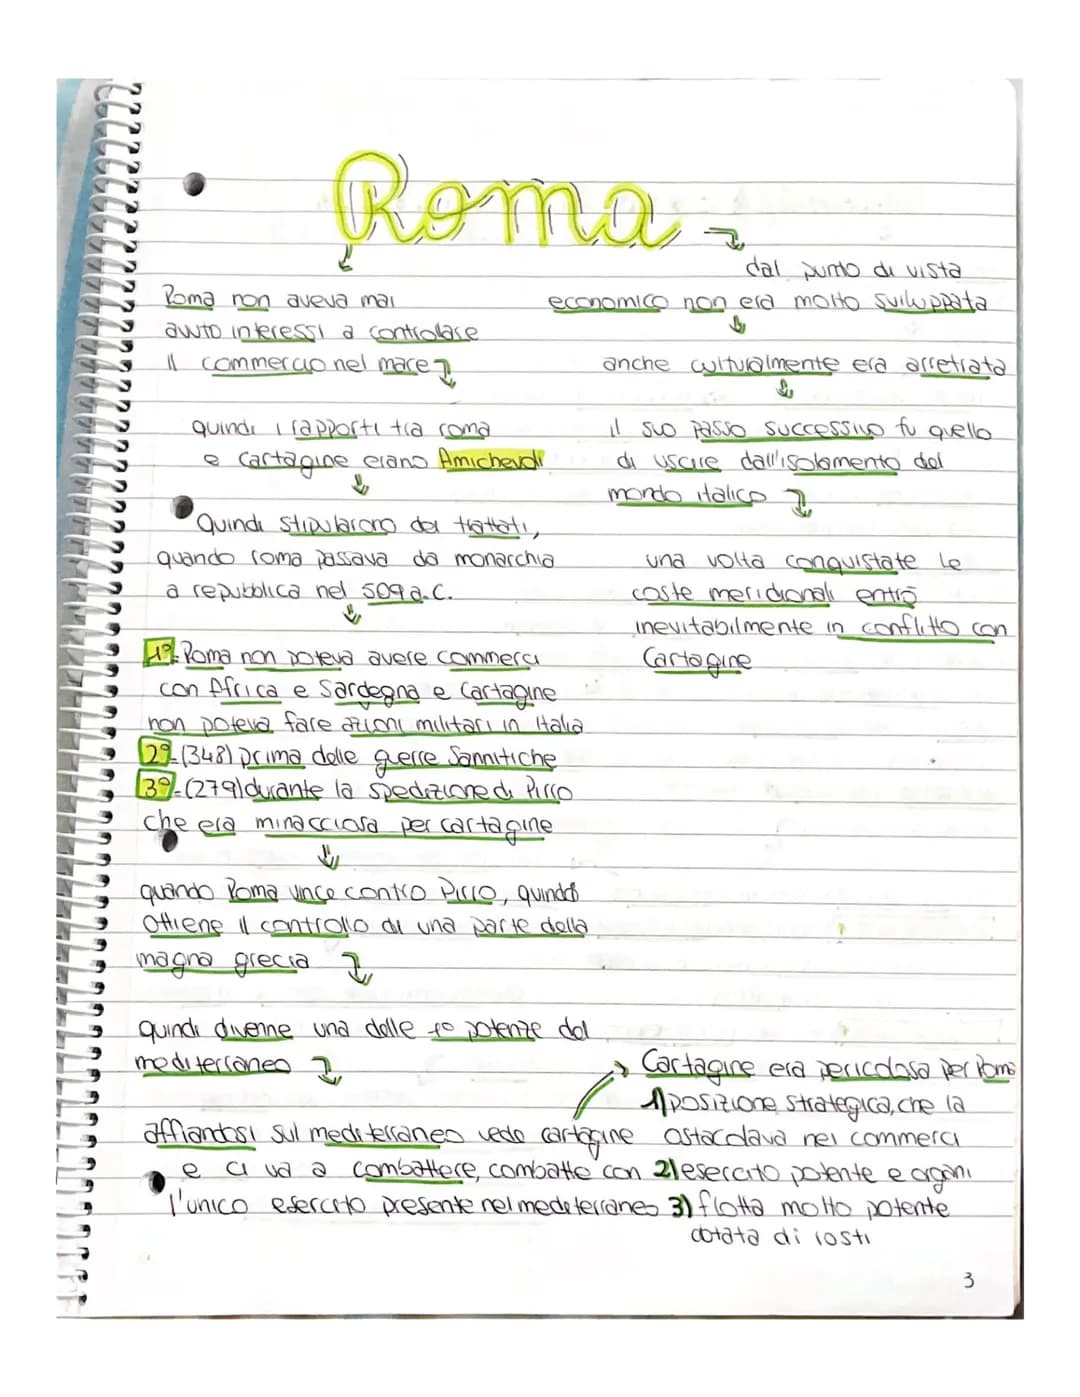 Roma
Roma non aveva mai
avuto interessi a controllare
il commercio nel mare
quindi i rapporti tra roma
e Cartagine erano Amichevoli
Quindi stipularono dei trattati,
quando roma passava da monarchia
a repubblica nel 509 a.C.
1º- Roma non poteva avere commerci
con Africa e Sardegna e Cartagine
non poteva fare azioni militari in Italia
2º-(348) prima delle guerre Sannitiche
3º-(279) durante la spedizione di Pirro
che era minacciosa per cartagine
quando Roma vince contro Pirro, quindi
Ottiene il controllo di una parte della
magna grecia
quindi divenne una delle potenze del
mediterraneo
affiandosi sul mediterraneo vede cartagine
e ci va a combattere, combatte con
l'unico esercito presente nel mediterraneo
dal punto di vista
economico non era molto sviluppata
anche culturalmente era arretrata
il suo passo successivo fu quello
di uscire dall'isolamento del
mondo italico
una volta conquistate le
coste meridionali entrò
inevitabilmente in conflitto con
Cartagine
Cartagine era pericolosa per Roma
1) posizione strategica, che la
ostacolava nei commerci
2) esercito potente e organi
3) flotta molto potente
dotata di rostri
3